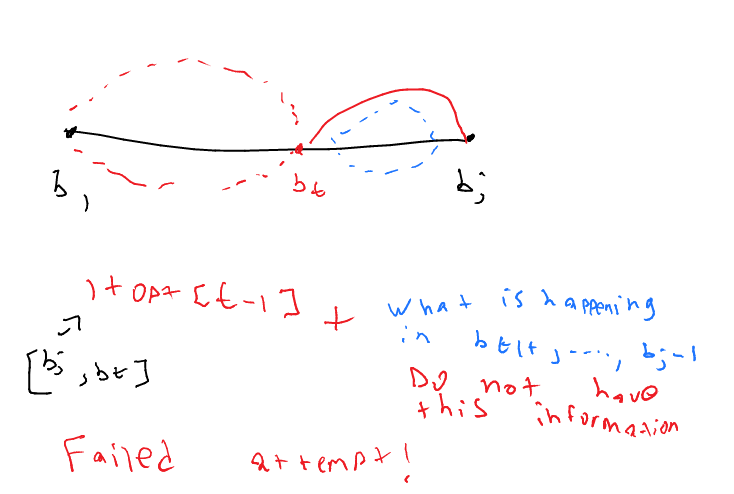 b1 bt bj
1+opt[t-1] + What is happening
in bt+1, ...., bj-1
[bj, bt] Do not have
this information
Failed attempt!